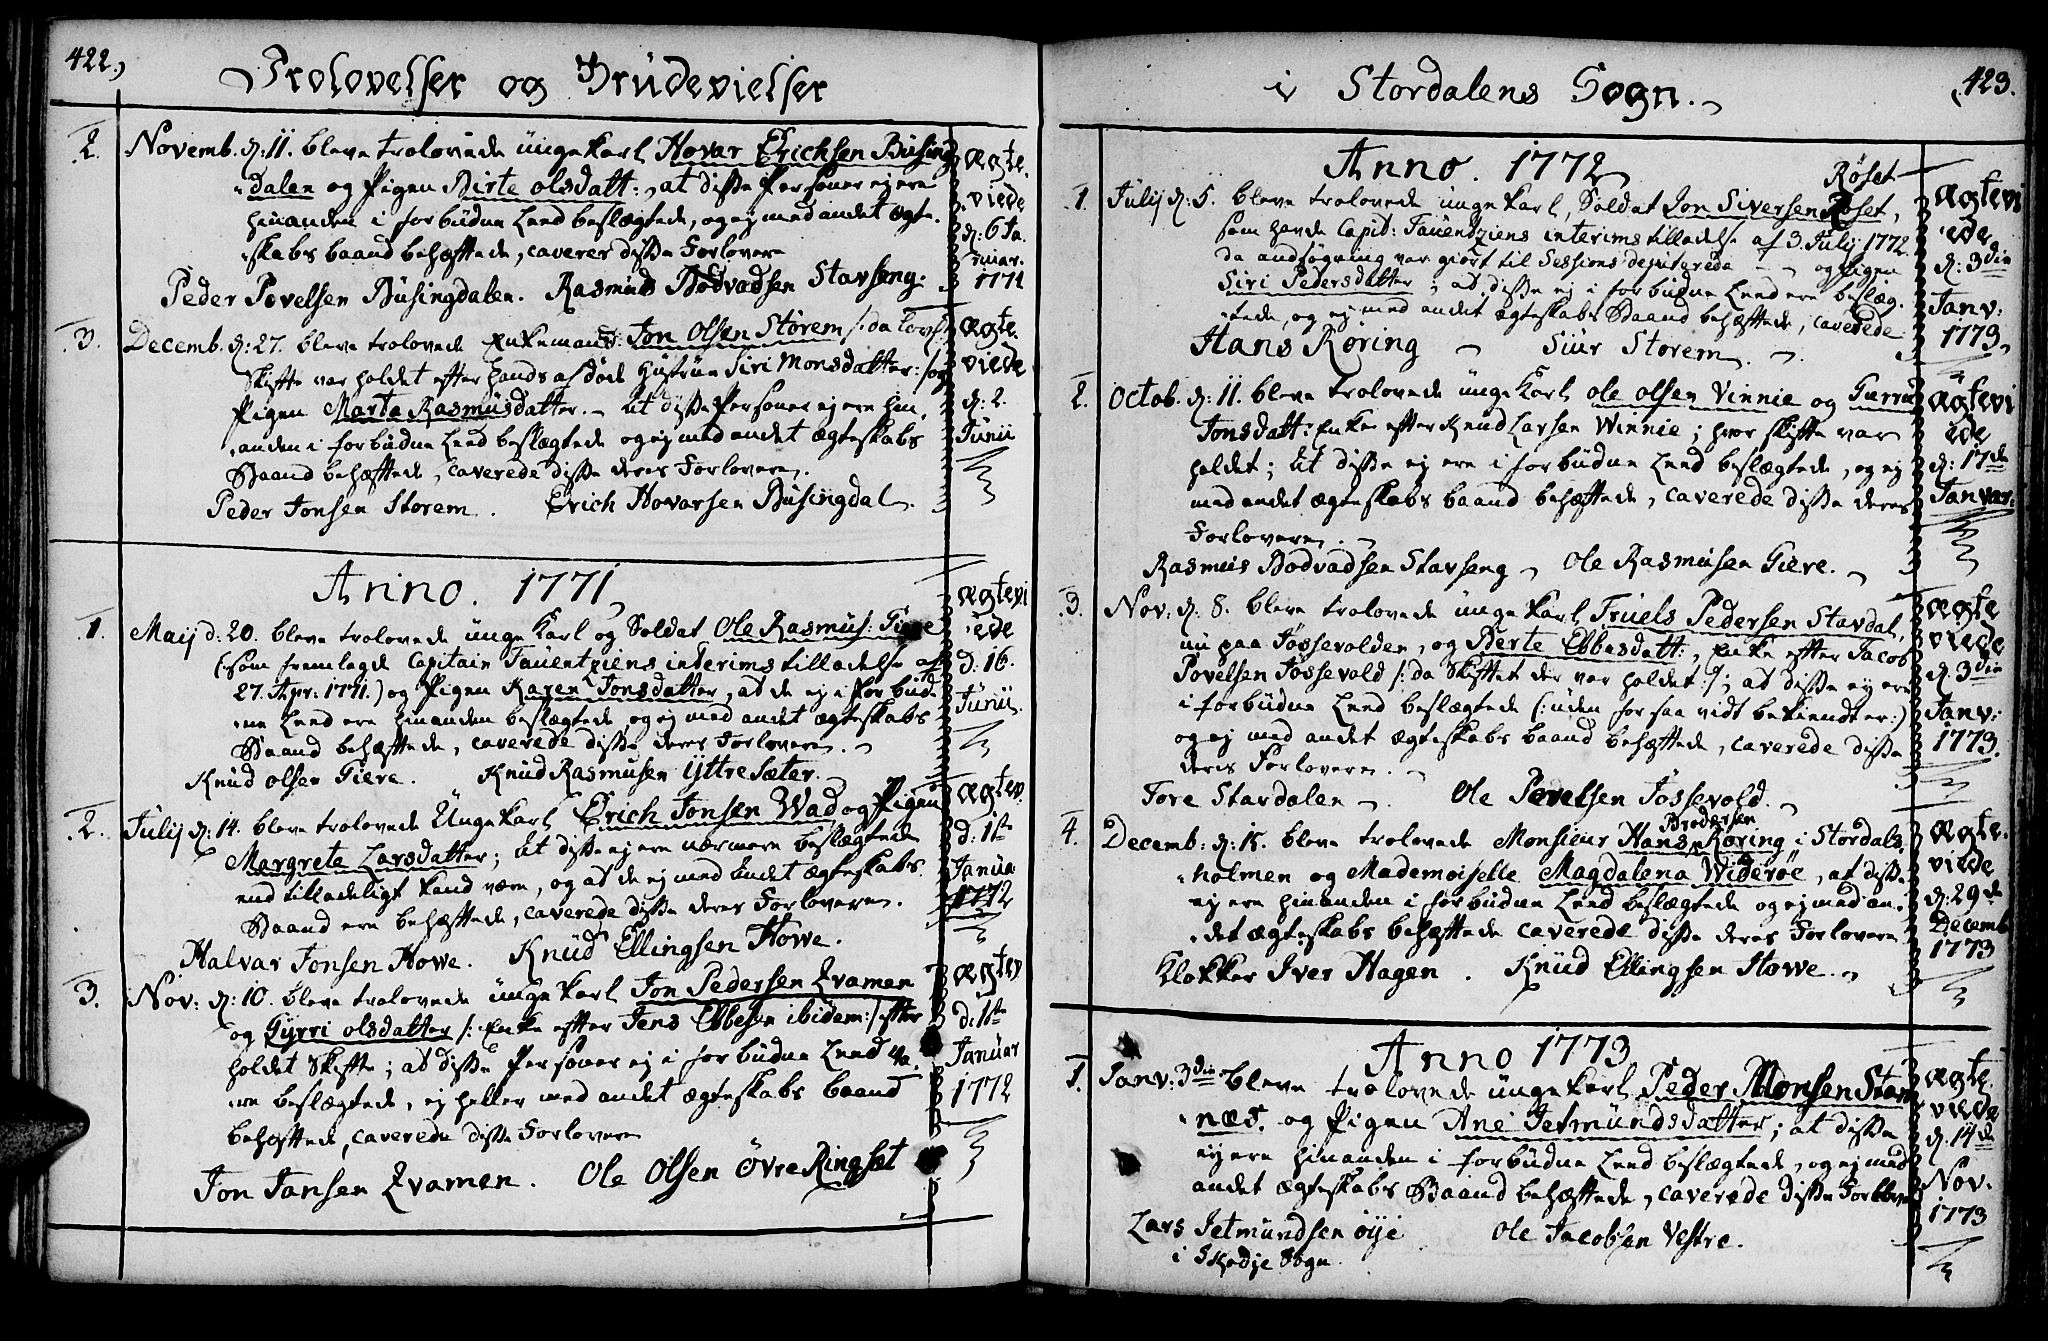 422.)
Trolovelser og Brüdevielser
2. Novemb. d: 11. bleve trolovede ungekarl Hovar Erichsen Büsing
-dalen og Pigen Birte olsdatt:, at disse Personer ej ere
hinanden i forbudne Leed beslægtede, og ej med andet ægte-
skabs baand behæftede, caverer disse Forlovere
Peder Povelsen Büsingdalen. Rasmus Bodvadsen Stavseng.
ægte-
viede
d: 6 Ja-
nuar.
1771
3. Decemb. d: 27. bleve trolovede Enkemand Jon Olsen Storem /: da lovl:
Skifte var holdet efter hands afdøde Hüstrüe Siri Monsdatter :/ og
Pigen Marta Rasmusdatter. At disse Personer ej ere hin-
anden i forbudne Leed beslægtede og ej med andet ægteskabs
Baand behæftede, caverede disse deres Forlovere.
Peder Jonsen Storem. Erich Hovarsen Büsingdal.
ægte-
viede
d: 2.
Junii
Anno. 1771
1. Maij d: 20. bleve trolovede unge Karl og Soldat Ole Rasmus: Giere
(som fremlagde Capitain Tauentziens interims tilladelse af
27. Apr: 1771.) og Pigen Karen Jonsdatter, at de ej i forbüd-
-ne Leed ere hinanden beslægtede, og ej med andet ægteskabs
Baand behæftede, caverede disse deres Forlovere.
Knüd olsen Giere. Knüd Rasmusen Yttresæter.
ægtevi
ede
d: 16.
Junii.
2. Julij d: 14. bleve trolovede Ungekarl Erich Jonsen Wad og Pigen
Margrete Larsdatter; At disse ej ere nærmere beslægtede
end tilladeligt kand være, og at de ej med andet ægteskabs
Baand ere behæftede, caverede disse deres Forlovere.
Halvar Jonsen Howe. Knüd Ellingsen Howe.
ægtev.
d: 1ste
Janua
1772
3. Nov: d: 10. bleve trolovede unge karl Jon Pedersen Kramen
og Gyrri olsdatter /: Enke efter Jens Ebbesen ibidem :/ efter
holdet Skifte; at disse Personer ej i forbudne Leed va-
-re beslægtede, ej heller med andet ægteskabs baand
behæftede, caverede disse Forlovere
Jon Jansen Kramen. Ole Olsen Øvre Ringset
ægtev
d: 1ste
Januar
1772
423.
i Stordalens Sogn.
Anno. 1772
Røset
1. Julij d: 5. bleve trolovede unge karl, Soldat Jon Siversen Røset,
som havde Capit: Tauentziens interims tilladelse af 3. Julij 1772.
da ansøgning var giort til Sessions deputerede - og Pigen
Siri Pedersdatter; at disse ej i forbudne Leed ere beslæg-
-tede, og ej med andet ægteskabs Baand behæftede, caverede
Hans Røring Siur Storem.
ægtevi
ede
d: 3die
Janv:
1773
2. Octob. d: 11. bleve trolovede unge Karl Ole Olsen Vinnie og Gurru
Jonsdatt: Enke efter Knud Larsen Winnie; hvor skifte var
holdet; At disse ej ere i forbudne Leed beslægtede, og ej
med andet ægteskabs baand behæftede, caverede disse deres
Forlovere.
Rasmus Bodvadsen Stavseng Ole Rasmusen Giere.
ægtevi
ede
d: 17de
Janvar.
3. Nov: d: 8. bleve trolovede unge karl Truels Pedersen Stavdal,
nu paa Fossevolden, og Berte Ebbesdatt:, Enke efter Jacob
Povelsen Fossevold /: da Skiftet der var holdet :/; at disse ej ere
i forbudne Leed beslægtede (: uden for saa vidt bekiendt er :)
og ej med andet ægteskabs baand behæftede, caverede disse
deres Forlovere.
Tore Stavdalen Ole Povelsen Fossevold.
ægte
viede
d: 3die
Janv:
1773.
4. Decemb: d: 15. bleve trolovede Monsieur Hans Brodersen Røring i Stordals-
-holmen og Mademoiselle Magdalena Widerøe, at disse
ej ere hinanden i forbudne Leed beslægtede og ej med an-
-det ægteskabs behæftede caverede disse deres Forlovere
Klokker Iver Hagen. Knüd Ellingsen Howe.
ægte-
viede
d: 29de
Decemb
1773
Anno 1773
1. Janv: 3die bleve trolovede unge karl Peder Monsen Stav-
-næs. og Pigen Ane Jetmundsdatter; at disse
ej ere hinanden i forbudne Leed beslægtede, og ej med
andet ægteskabs Baand behæftede, caverede disse Forlover
Lars Jetmundsen Øije Ole Jacobsen Vestre.
i Skodje Sogn.
ægte-
viede
d: 14de
Nov.
1773